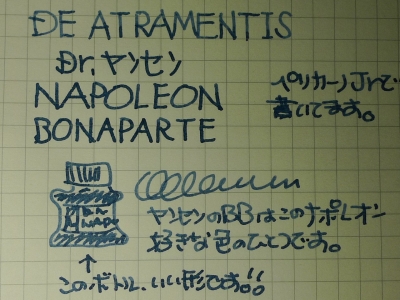 DE ATRAMENTIS
Dr. ヤンセン
NAPOLEON
BONAPARTE
ペリカーノJrで
書いてます。
ヤンセンのBBはこのナポレオン
好きな色のひとつです。
↑
このボトル、いい形です!!